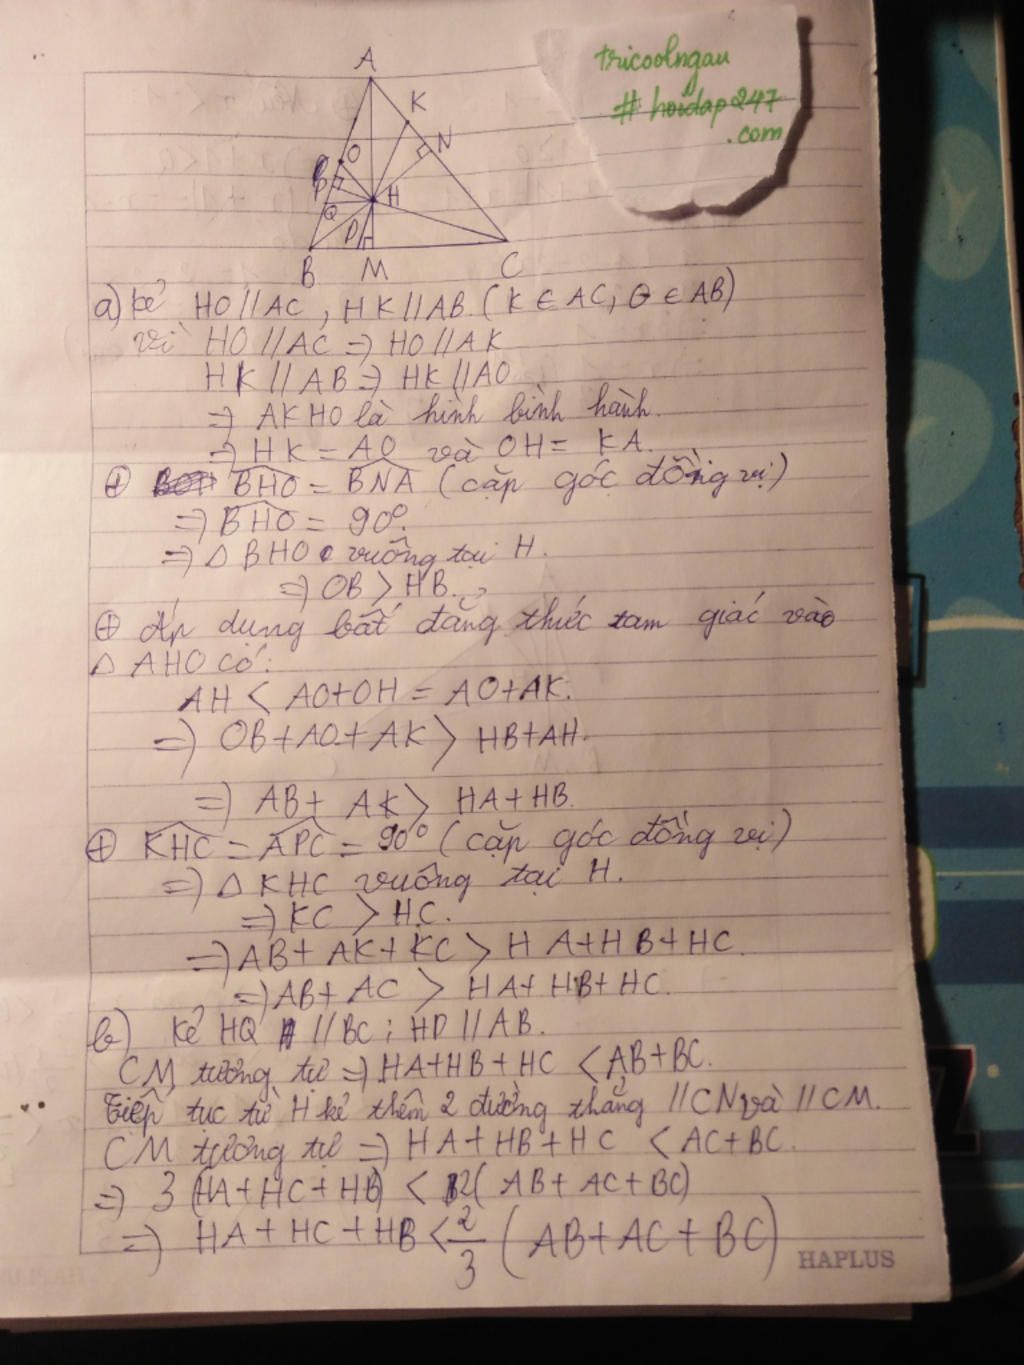 tricoolngau
# hoidap247
.com
A
K
O
N
P
H
Q
D
B
M
C
a) Kẻ HO // AC, HK // AB (K ∈ AC, O ∈ AB)
vì HO // AC => HO // AK
HK // AB => HK // AO
=> AKHO là hình bình hành.
=> HK = AO và OH = KA.
⊕ BHO = BNA (cặp góc đồng vị)
=> BHO = 90°.
=> Δ BHO vuông tại H.
=> OB > HB.
⊕ Áp dụng bất đẳng thức tam giác vào
Δ AHO có:
AH < AO+OH = AO+AK.
=> OB+AO+AK > HB+AH.
=> AB+ AK > HA+HB.
⊕ KHC = APC = 90° (cặp góc đồng vị)
=> Δ KHC vuông tại H.
=> KC > HC.
=> AB+ AK+ KC > HA+HB+HC.
=> AB+ AC > HA+ HB+ HC.
b) Kẻ HQ // BC ; HD // AB.
CM tương tự => HA+HB+HC < AB+BC.
Tiếp tục từ H kẻ thêm 2 đường thẳng //CN và //CM.
CM tương tự => HA+HB+HC < AC+BC.
=> 3 (HA+HC+HB) < 2( AB+ AC+ BC)
=> HA+HC+HB < 2/3 ( AB+AC+BC)
HAPLUS